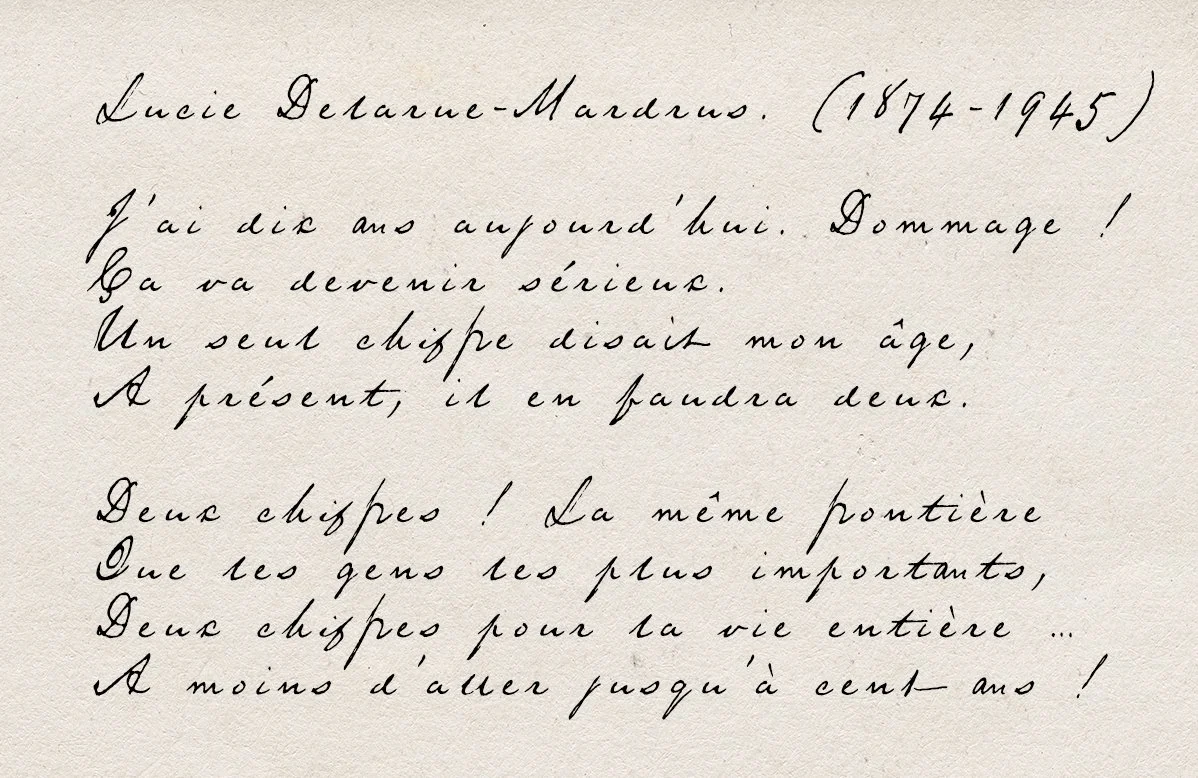 Lucie Delarue-Mardrus. (1874-1945)
J'ai dix ans aujourd'hui. Dommage !
Ça va devenir sérieux.
Un seul chiffre disait mon âge,
A présent, il en faudra deux.
Deux chiffres ! La même frontière
Que les gens les plus importants,
Deux chiffres pour la vie entière ...
A moins d'aller jusqu'à cent ans !